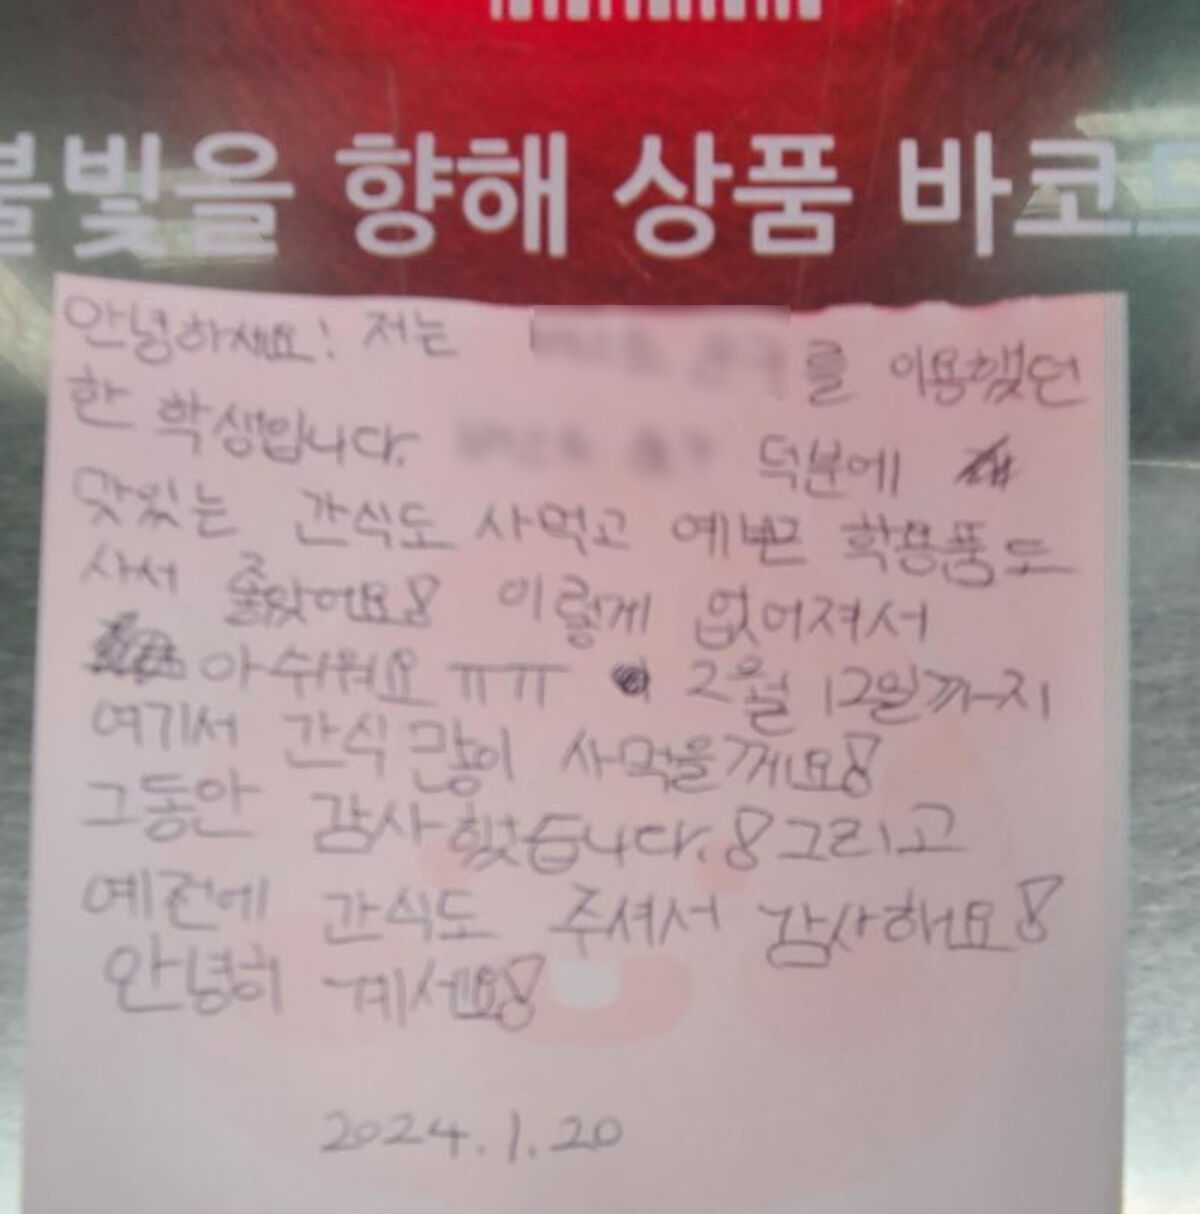 불빛을 향해 상품 바코드
안녕하세요! 저는 를 이용했던
한 학생입니다. 덕분에
맛있는 간식도 사먹고 예쁜 학용품도
사서 좋았어요! 이렇게 없어져서
아쉬워요 ㅠㅠ 2월 12일까지
여기서 간식 많이 사먹을께요!
그동안 감사했습니다.! 그리고
예전에 간식도 주셔서 감사해요!
안녕히 계세요!
2024.1.20